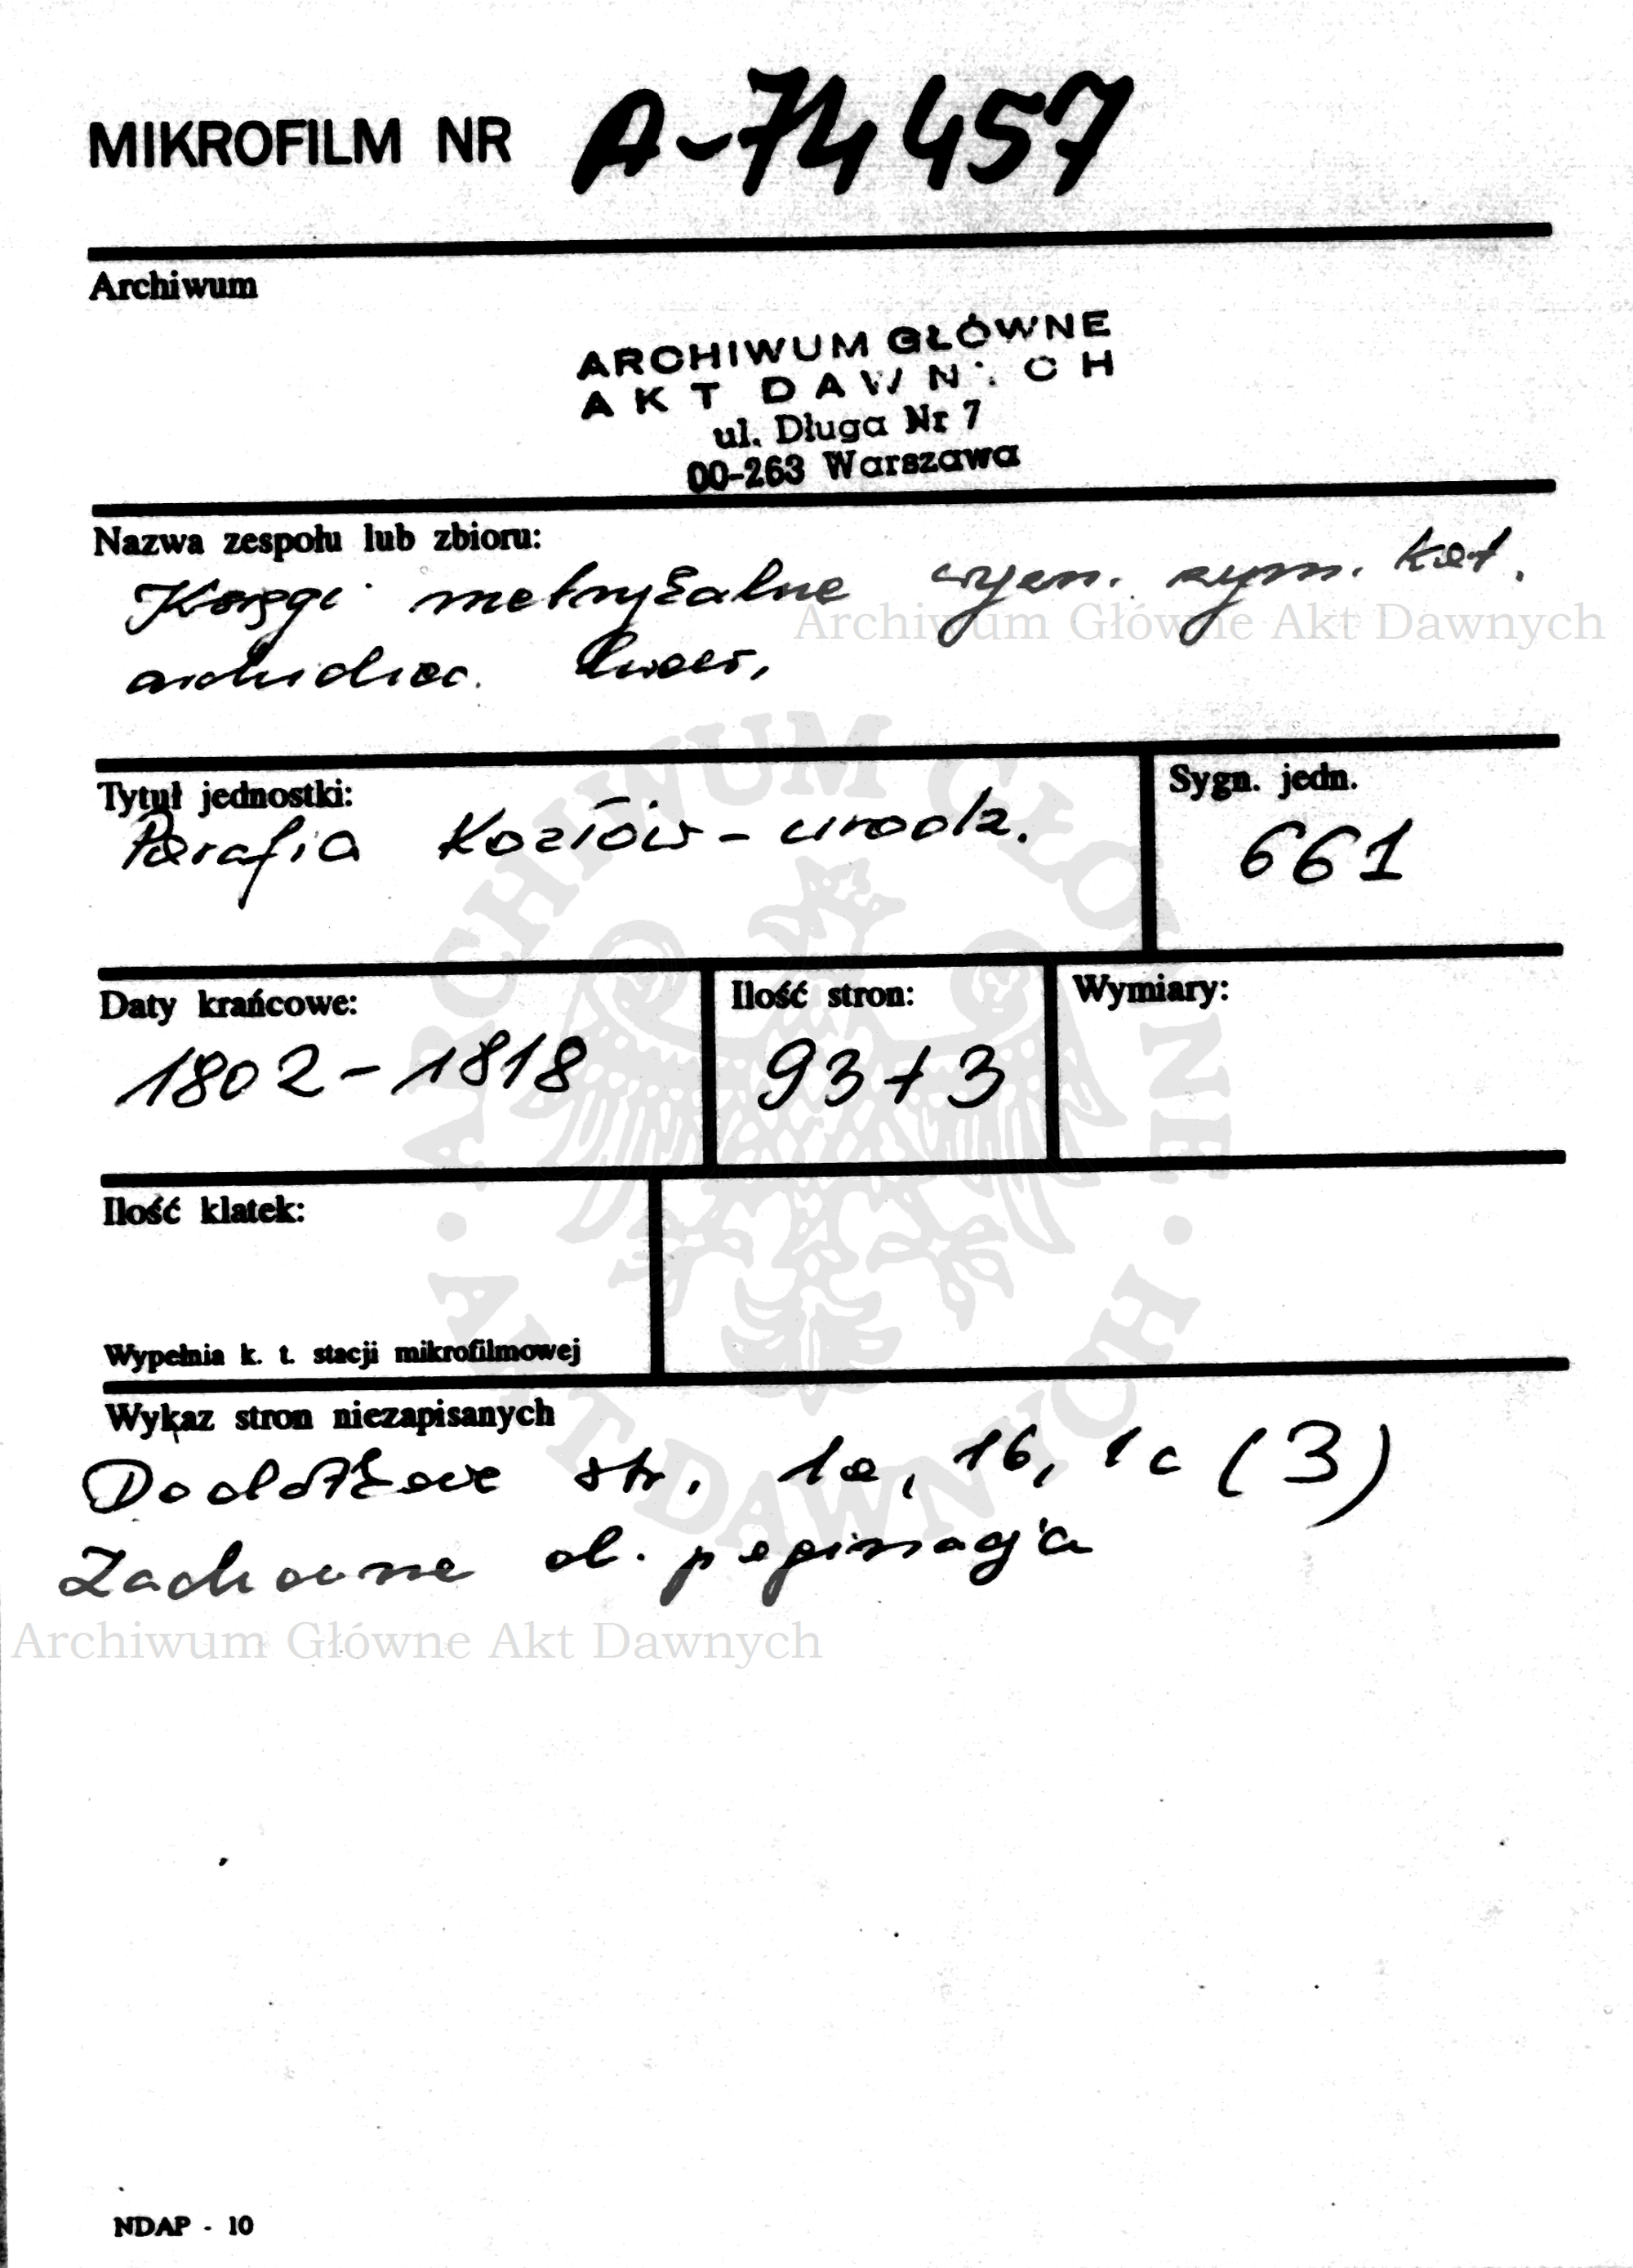 MIKROFILM NR A-74457
Archiwum
ARCHIWUM GŁÓWNE
AKT DAWNYCH
ul. Długa Nr 7
00-263 Warszawa
Nazwa zespołu lub zbioru:
Księgi metrykalne wyzn. rzym. kat.
Archiwum Główne Akt Dawnych
archidiec. lwow.
Tytuł jednostki:
Parafia Kozłów - urodz.
Sygn. jedn.
661
Daty krańcowe:
1802-1818
Ilość stron:
93+3
Wymiary:
Ilość klatek:
Wypełnia k. t. stacji mikrofilmowej
Wykaz stron niezapisanych
Dodatkowe str. 1a, 1b, 1c (3)
Zachowane ob. paginacja
Archiwum Główne Akt Dawnych
ARCHIWUM GŁÓWNE · AKT DAWNYCH ·
NDAP - 10